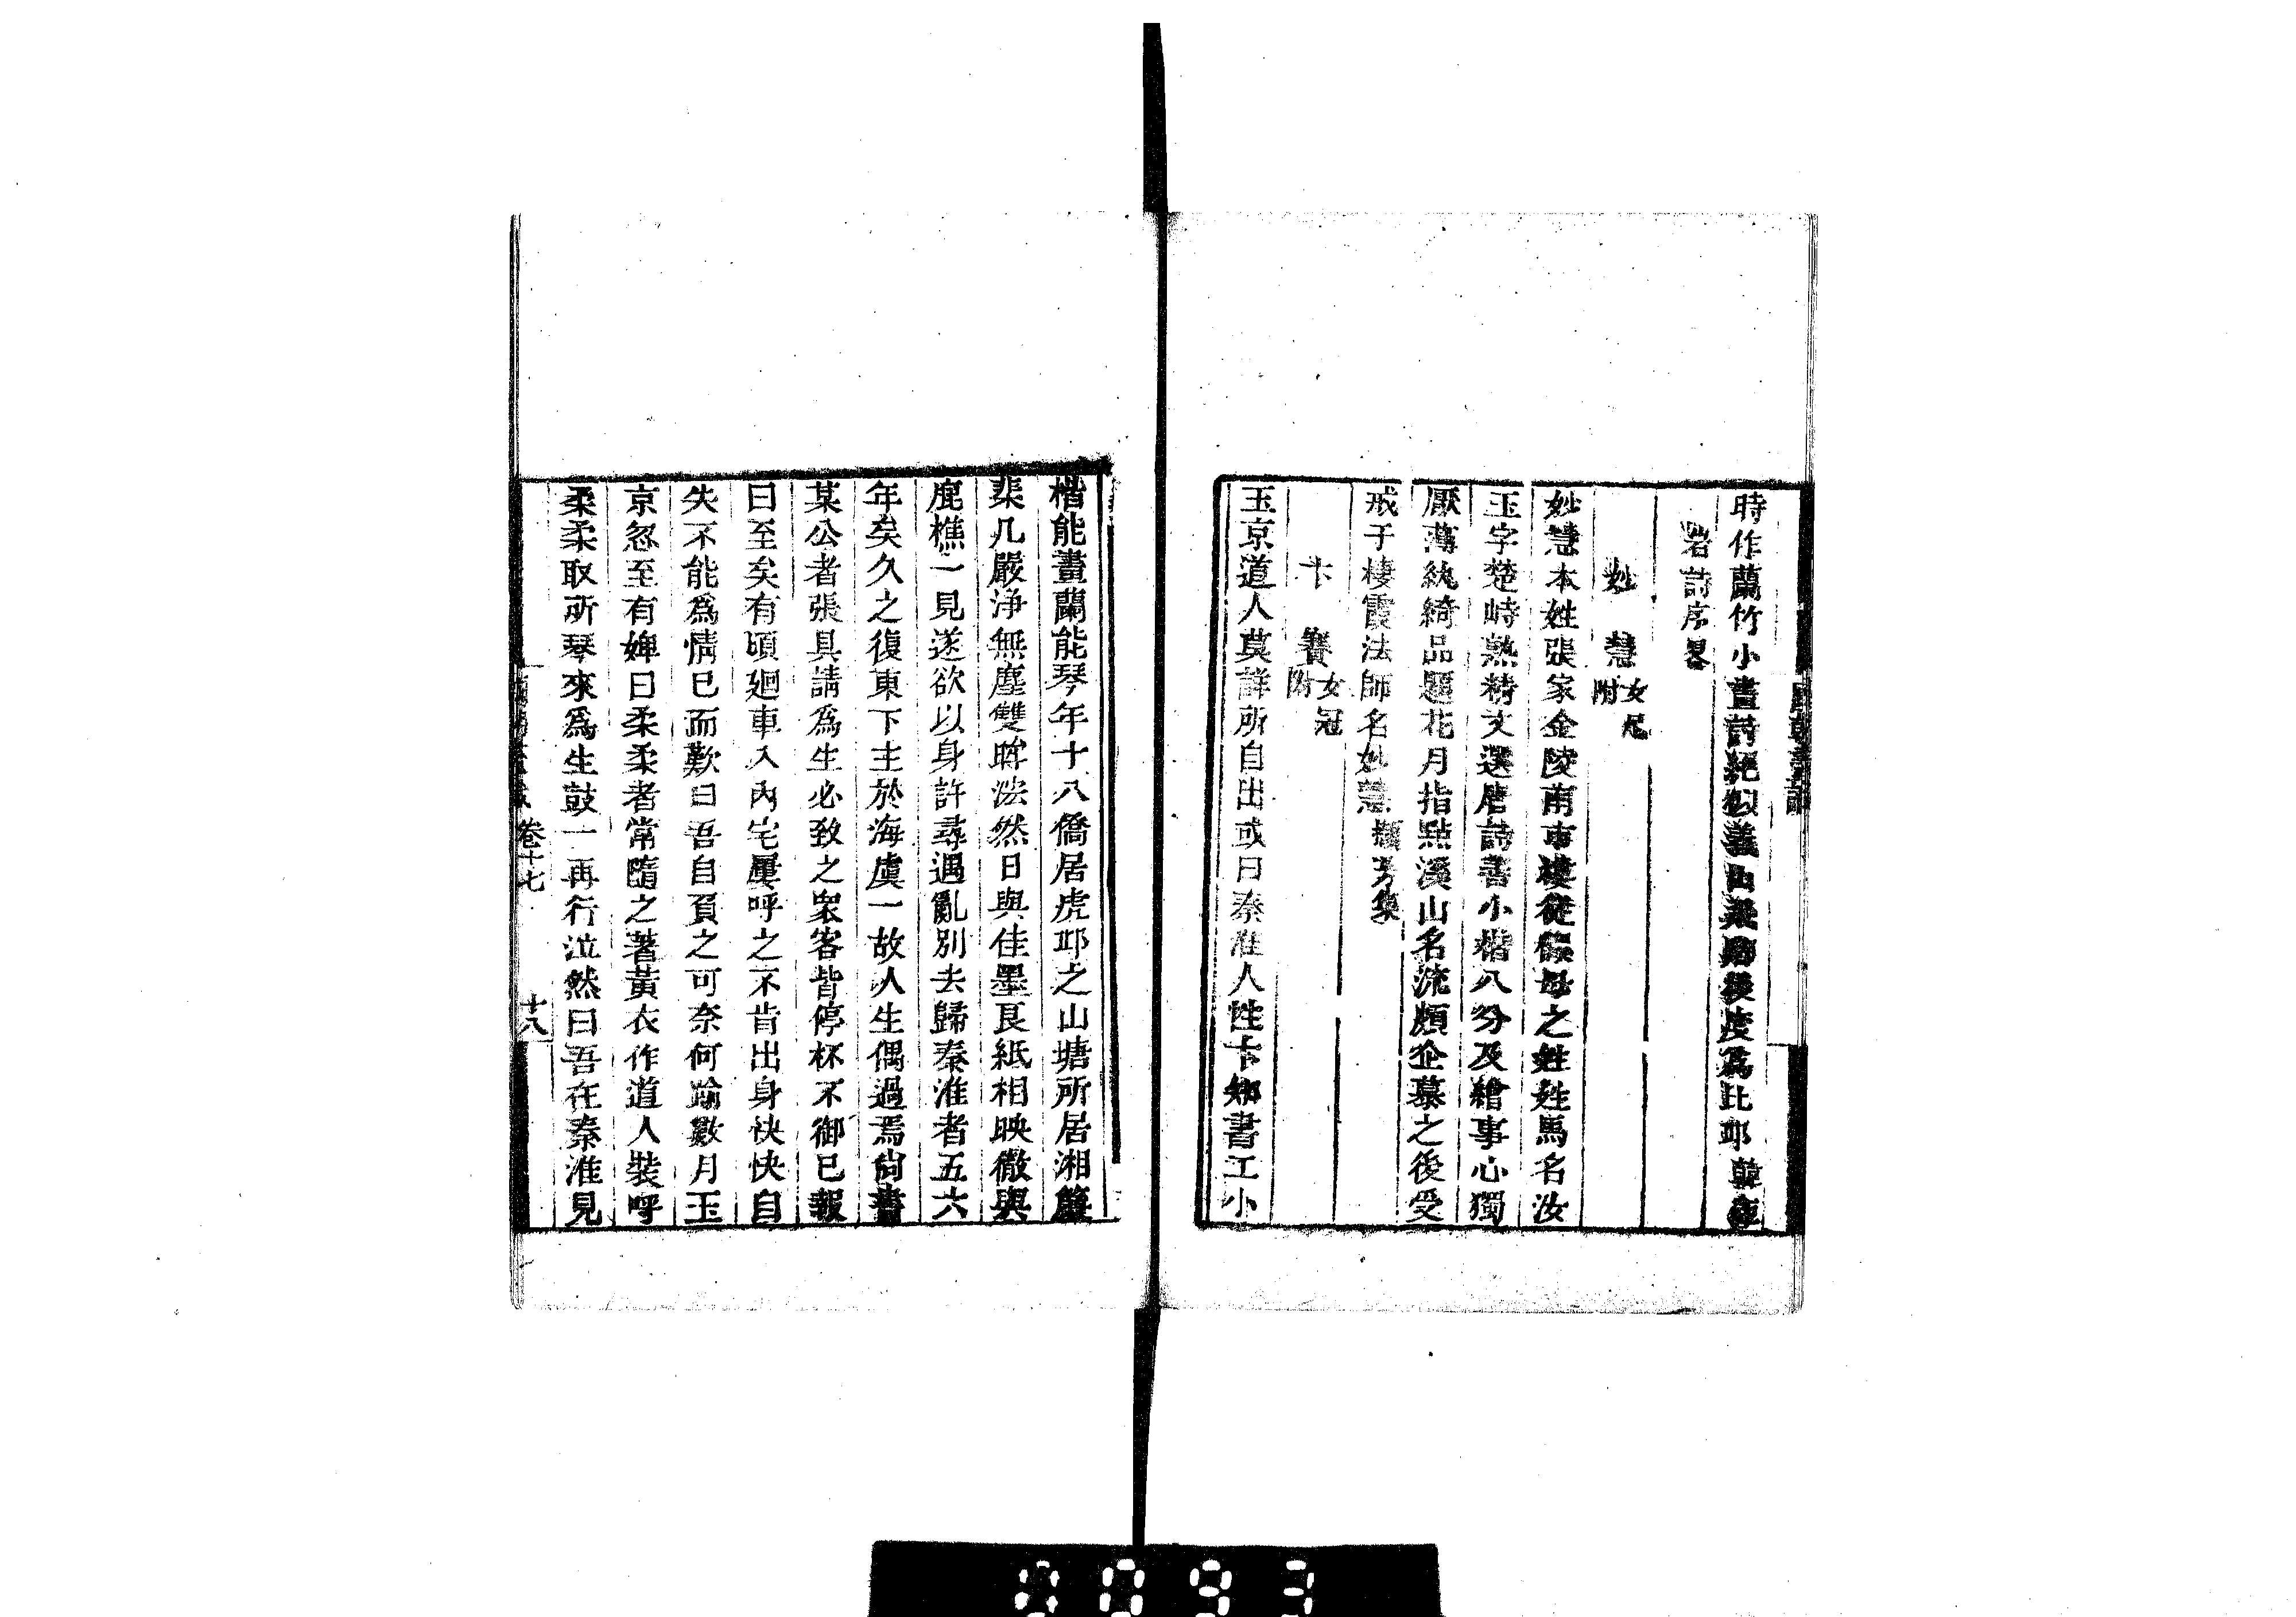 時作蘭竹小畫詩絕似義山
後度爲比邱韓
岩詩序畧
妙慧 女冠附
妙慧本姓張家金陵南市樓從假母之姓姓馬名汝
玉字楚峙熟精文選唐詩善小楷八分及繪事心獨
厭薄紈綺品題花月指點溪山名流頗企慕之後受
戒于棲霞法師名妙慧 集
卞賽 女冠附
玉京道人莫詳所自出或曰秦淮人性卞知書工小
楷能畫蘭能琴年十八僑居虎邱之山塘所居湘簾
棐几嚴净無塵雙眸泓然日與佳墨良紙相映徹與
鹿樵一見遂欲以身許尋遇亂別去歸秦淮者五六
年矣久之復東下主於海虞一故人生偶過焉尙書
某公者張具請爲生必致之衆客皆停杯不御已報
曰至矣有頃廻車入內宅屢呼之不肯出身怏怏自
失不能爲情已而歎曰吾自負之可奈何踰數月玉
京忽至有婢曰柔柔者常隨之著黃衣作道人裝呼
柔柔取所琴來爲生鼓一再行泣然曰吾在秦淮見
卷十七
十八